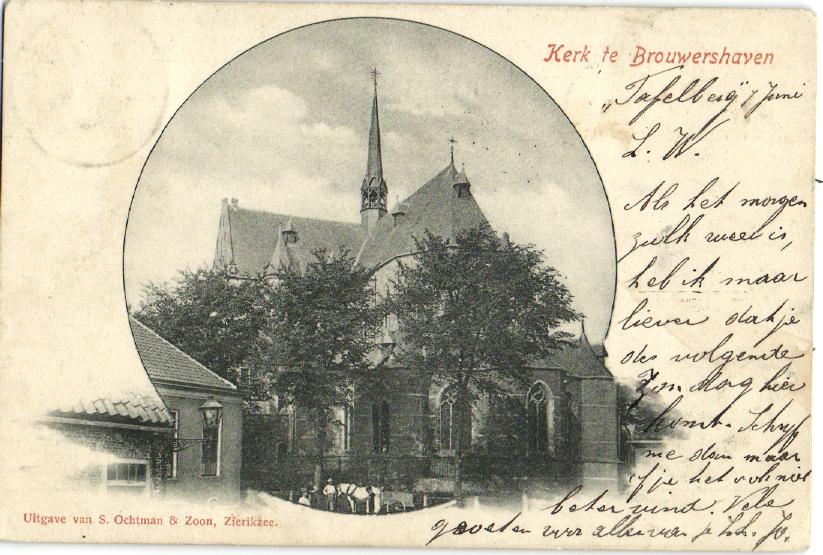 Kerk te Brouwershaven
„Tafelberg" 7 Juni
L. W.
Als het morgen
zulk weer is,
heb ik maar
liever dat je
des volgende
Zondag hier
komt. Schrijf
me dan maar
of je het ook niet
beter vind. Vele
groeten voor allen van je Jo.
Uitgave van S. Ochtman & Zoon, Zierikzee.